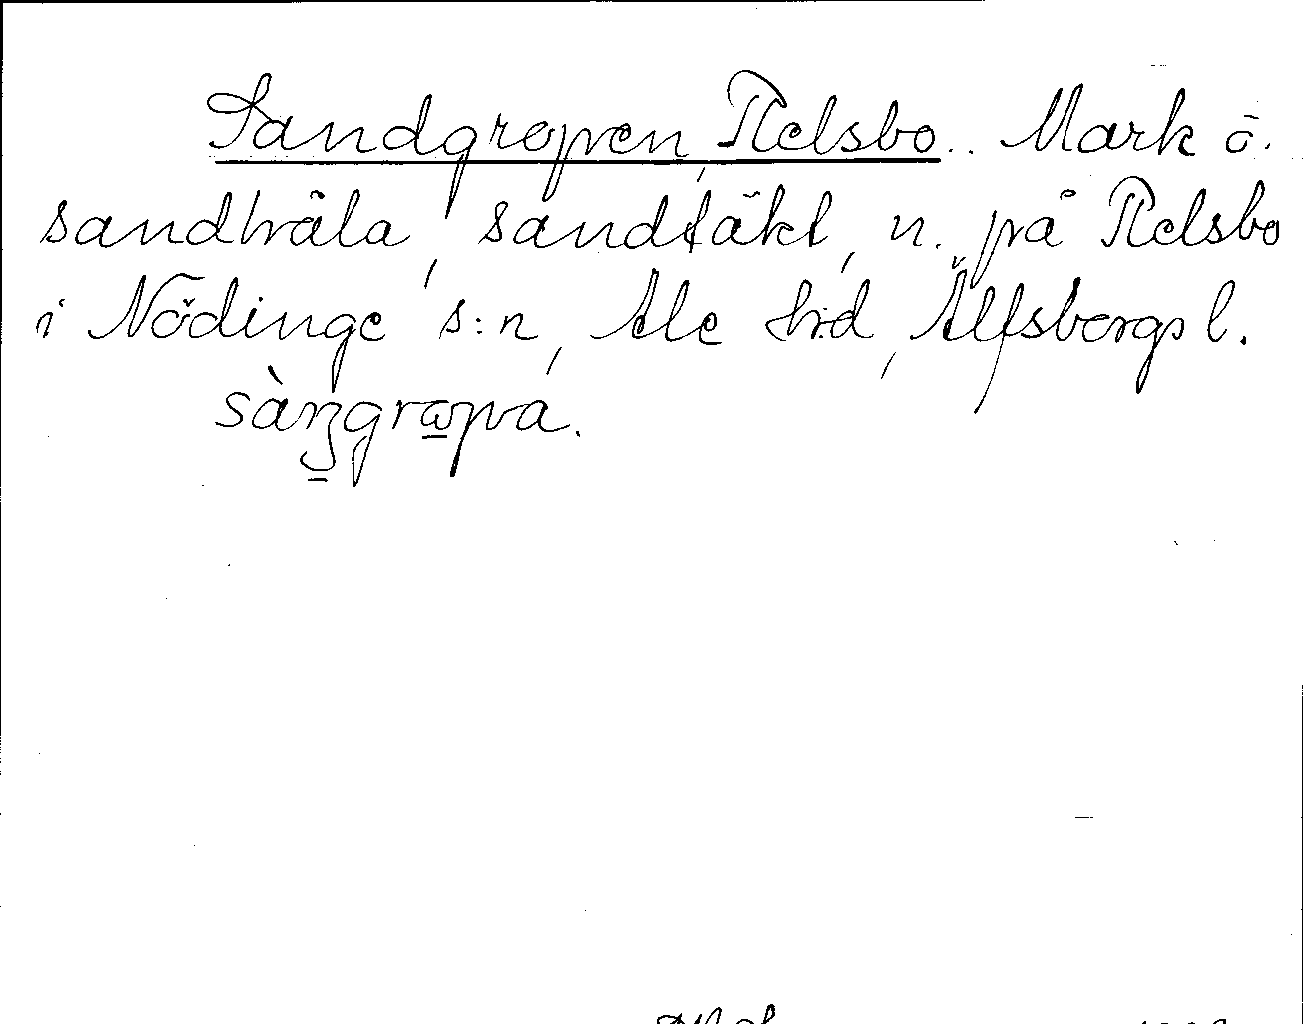 Sandgropen, Relsbo.. Mark o.
sandhåla, sandtäkt, n. på Relsbo
i Nödinge s:n, Ale h:d, Älfsborgs l.
sàngrɷpa.